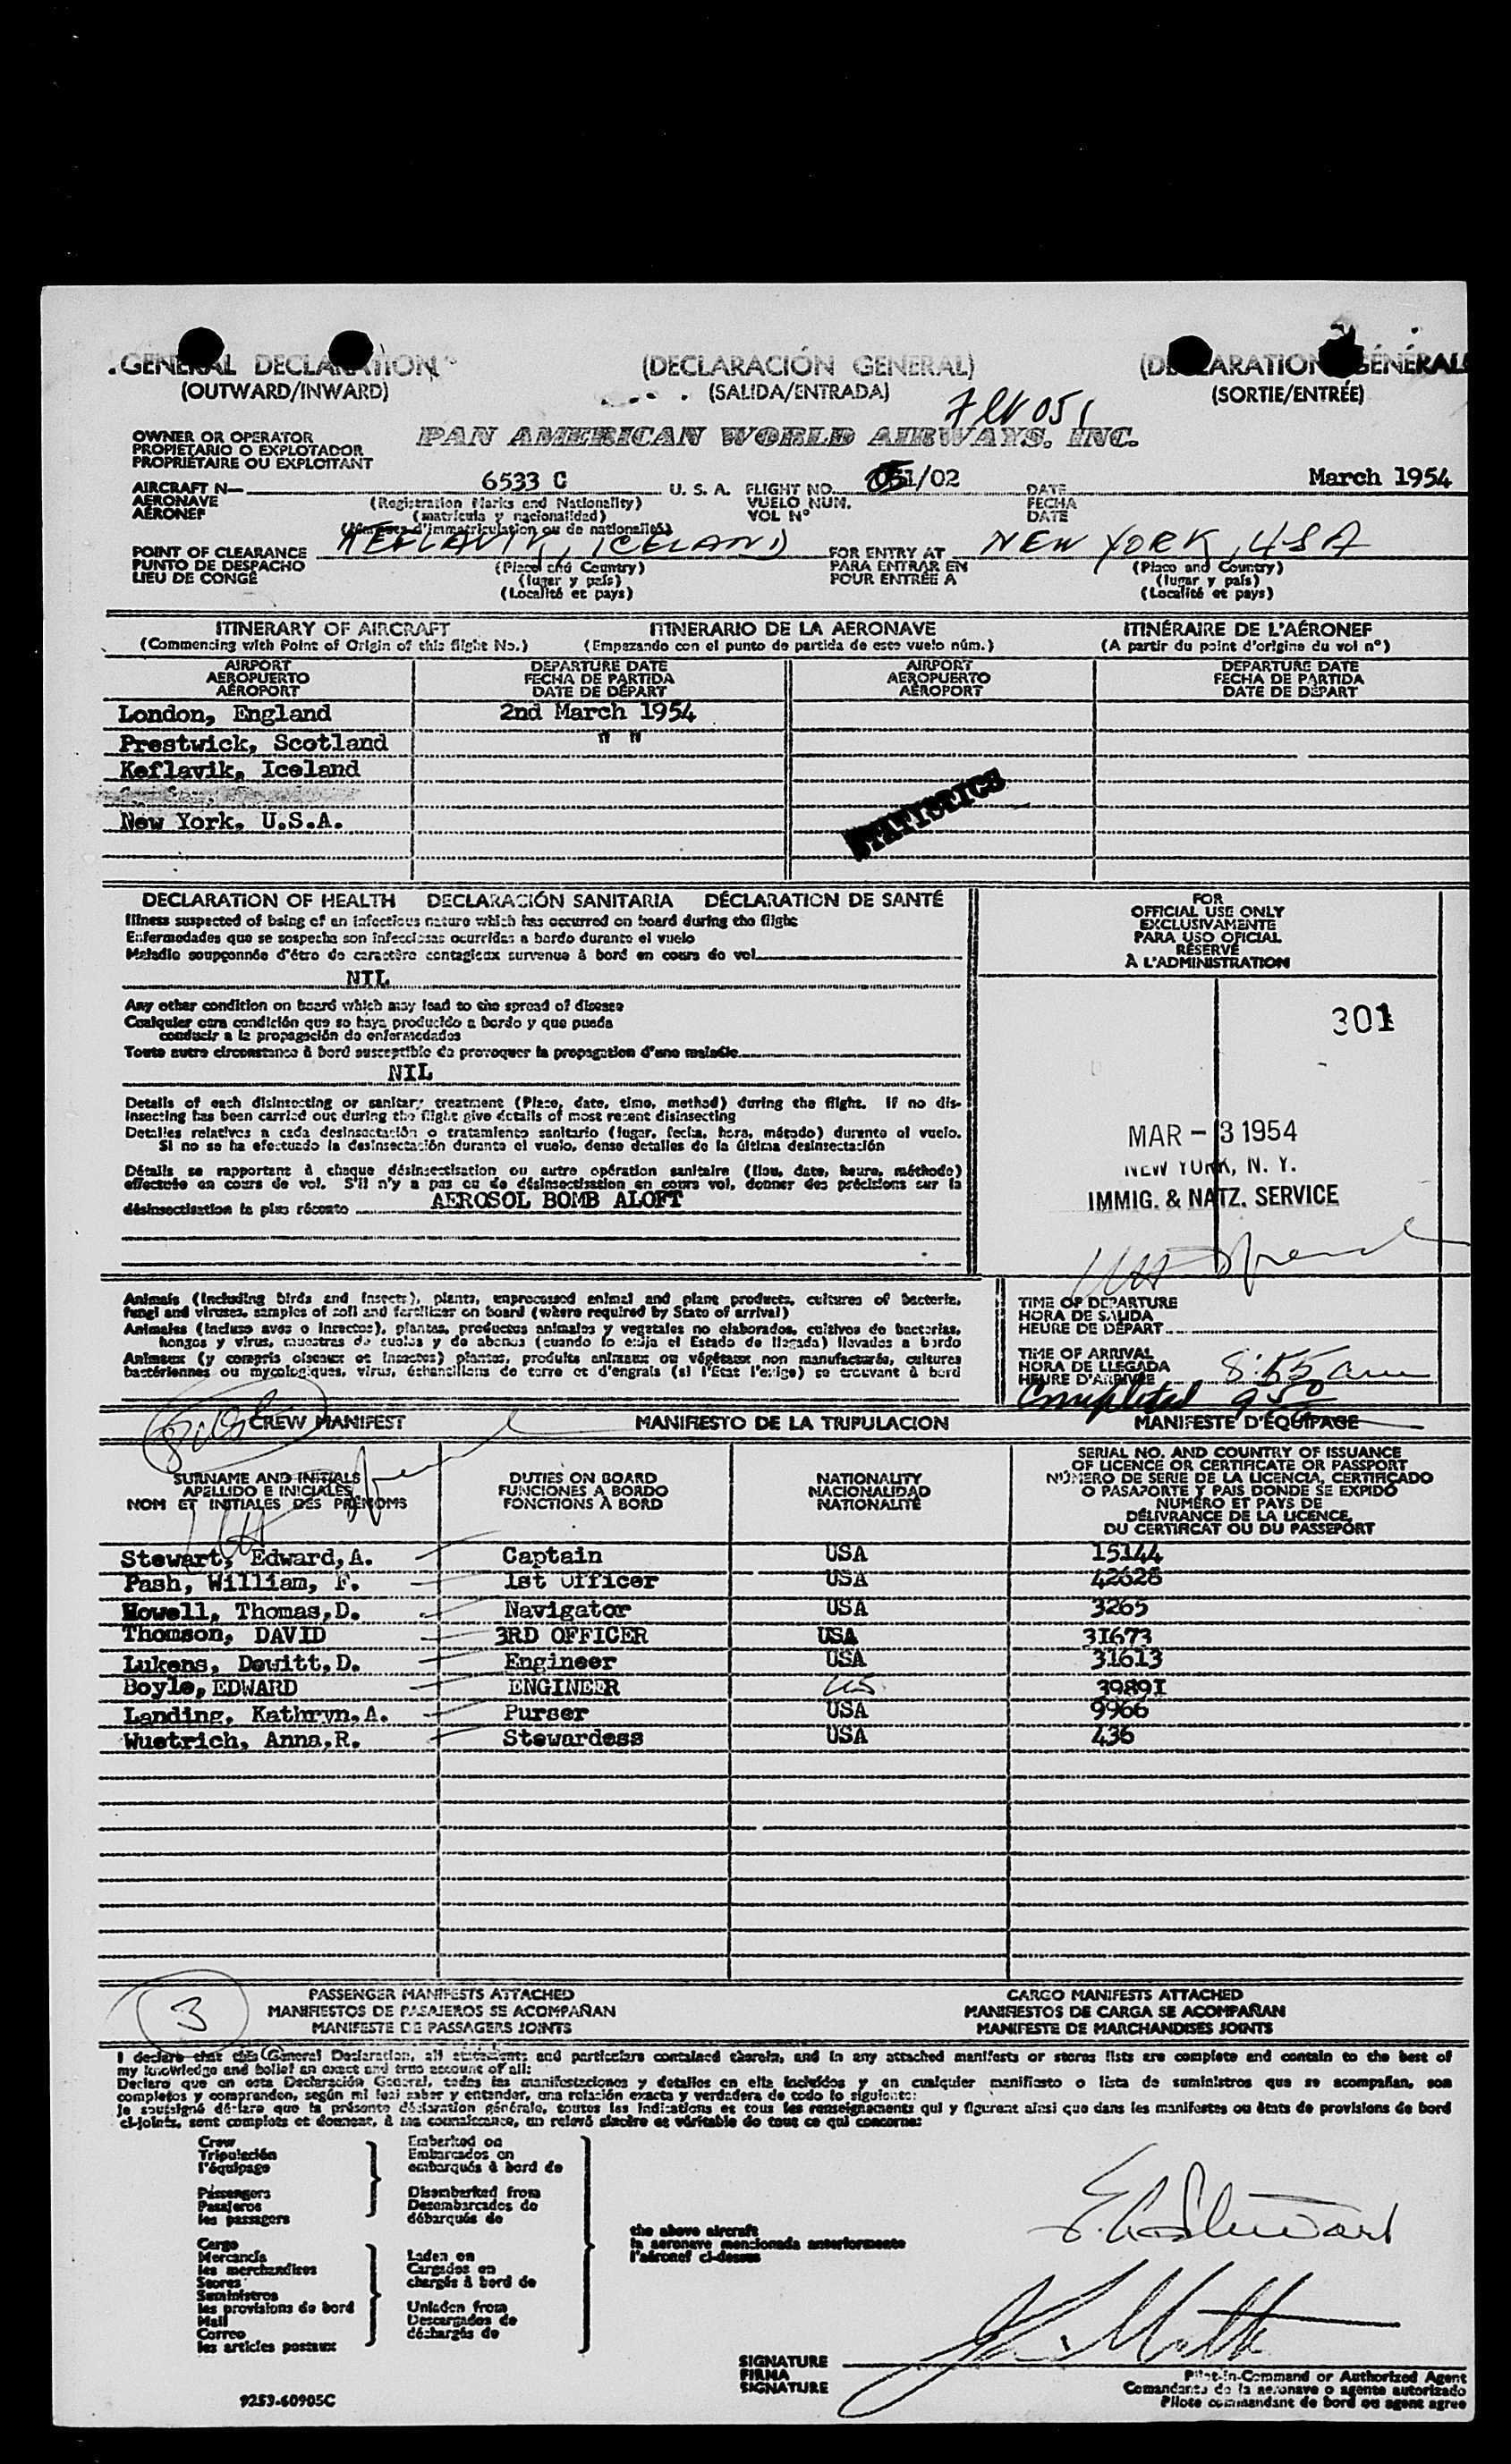 GENERAL DECLARATION (DECLARACIÓN GENERAL) (DECLARATION GÉNÉRALE
(OUTWARD/INWARD) (SALIDA/ENTRADA) (SORTIE/ENTRÉE)
051
OWNER OR OPERATOR
PROPIETARIO O EXPLOTADOR
PROPRIÉTAIRE OU EXPLOITANT
PAN AMERICAN WORLD AIRWAYS, INC.
AIRCRAFT N— 6533 C U. S. A. FLIGHT NO. 051/02 DATE March 1954
AERONAVE (Registration Marks and Nationality) VUELO NUM. FECHA
AÉRONEF (matrícula y nacionalidad) VOL N° DATE
(Marques d'immatriculation ou de nationalité)
POINT OF CLEARANCE KEFLAVIK, ICELAND FOR ENTRY AT NEW YORK, USA
PUNTO DE DESPACHO (Place and Country) PARA ENTRAR EN (Place and Country)
LIEU DE CONGÉ (lugar y país) POUR ENTRÉE A (lugar y país)
(Localité et pays) (Localité et pays)
ITINERARY OF AIRCRAFT ITINERARIO DE LA AERONAVE ITINÉRAIRE DE L'AÉRONEF
(Commencing with Point of Origin of this flight No.) (Empezando con el punto de partida de este vuelo núm.) (A partir du point d'origine du vol n°)
AIRPORT DEPARTURE DATE AIRPORT DEPARTURE DATE
AEROPUERTO FECHA DE PARTIDA AEROPUERTO FECHA DE PARTIDA
AÉROPORT DATE DE DÉPART AÉROPORT DATE DE DÉPART
London, England 2nd March 1954
Prestwick, Scotland " "
Keflavik, Iceland
STATISTICS
New York, U.S.A.
DECLARATION OF HEALTH DECLARACIÓN SANITARIA DÉCLARATION DE SANTÉ
Illness suspected of being of an infectious nature which has occurred on board during the flight
Enfermedades que se sospecha son infecciosas ocurridas a bordo durante el vuelo
Maladie soupçonnée d'être de caractère contagieux survenue à bord en cours de vol
NIL
Any other condition on board which may lead to the spread of disease
Cualquier otra condición que se haya producido a bordo y que pueda
conducir a la propagación de enfermedades
Toute autre circonstance à bord susceptible de provoquer la propagation d'une maladie
NIL
Details of each disinsecting or sanitary treatment (Place, date, time, method) during the flight. If no dis-
insecting has been carried out during the flight give details of most recent disinsecting
Detalles relativos a cada desinsectación o tratamiento sanitario (lugar, fecha, hora, método) durante el vuelo.
Si no se ha efectuado la desinsectación durante el vuelo, dense detalles de la última desinsectación
Détails se rapportant à chaque désinsectisation ou autre opération sanitaire (lieu, date, heure, méthode)
effectuée en cours de vol. S'il n'y a pas eu de désinsectisation en cours vol, donner des précisions sur la
désinsectisation la plus récente AEROSOL BOMB ALOFT
FOR
OFFICIAL USE ONLY
EXCLUSIVAMENTE
PARA USO OFICIAL
RÉSERVÉ
À L'ADMINISTRATION
301
MAR - 3 1954
NEW YORK, N. Y.
IMMIG. & NATZ. SERVICE
Animals (Including birds and insects), plants, unprocessed animal and plant products, cultures of bacteria,
fungi and viruses, samples of soil and fertilizer on board (where required by State of arrival)
Animales (Incluso aves o insectos), plantas, productos animales y vegetales no elaborados, cultivos de bacterias,
hongos y virus, muestras de suelos y de abonos (cuando lo exija el Estado de llegada) llevados a bordo
Animaux (y compris oiseaux et insectes) plantes, produits animaux ou végétaux non manufacturés, cultures
bactériennes ou mycologiques, virus, échantillons de terre et d'engrais (si l'Etat l'exige) se trouvant à bord
TIME OF DEPARTURE
HORA DE SALIDA
HEURE DE DÉPART
TIME OF ARRIVAL
HORA DE LLEGADA 8:55 am
HEURE D'ARRIVÉE
Completed 9 50
CREW MANIFEST MANIFIESTO DE LA TRIPULACION MANIFESTE D'ÉQUIPAGE
SURNAME AND INITIALS
APELLIDO E INICIALES
NOM ET INITIALES DES PRÉNOMS
DUTIES ON BOARD
FUNCIONES A BORDO
FONCTIONS À BORD
NATIONALITY
NACIONALIDAD
NATIONALITÉ
SERIAL NO. AND COUNTRY OF ISSUANCE
OF LICENCE OR CERTIFICATE OR PASSPORT
NÚMERO DE SERIE DE LA LICENCIA, CERTIFICADO
O PASAPORTE Y PAIS DONDE SE EXPIDO
NUMÉRO ET PAYS DE
DÉLIVRANCE DE LA LICENCE,
DU CERTIFICAT OU DU PASSEPORT
Stewart, Edward,A. Captain USA 15144
Pash, William, F. 1st Officer USA 42628
Howell, Thomas,D. Navigator USA 3265
Thomson, DAVID 3RD OFFICER USA 31673
Lukens, Dewitt,D. Engineer USA 31613
Boyle, EDWARD ENGINEER US 39891
Landing, Kathryn,A. Purser USA 9966
Wuetrich, Anna,R. Stewardess USA 436
3
PASSENGER MANIFESTS ATTACHED CARGO MANIFESTS ATTACHED
MANIFIESTOS DE PASAJEROS SE ACOMPAÑAN MANIFIESTOS DE CARGA SE ACOMPAÑAN
MANIFESTE DE PASSAGERS JOINTS MANIFESTE DE MARCHANDISES JOINTS
I declare that this General Declaration, all statements and particulars contained therein, and in any attached manifests or stores lists are complete and contain to the best of
my knowledge and belief an exact and true account of all:
Declaro que en esta Declaración General, todas las manifestaciones y detalles en ella incluidos y en cualquier manifiesto o lista de suministros que se acompañan, son
completos y comprenden, según mi leal saber y entender, una relación exacta y verdadera de todo lo siguiente:
Je soussigné déclare que la présente déclaration générale, toutes les indications et tous les renseignements qui y figurent ainsi que dans les manifestes ou états de provisions de bord
ci-joints, sont complets et donnent, à ma connaissance, un relevé sincère et véritable de tout ce qui concerne:
Crew
Tripulación
l'équipage
Passengers
Pasajeros
les passagers
Cargo
Mercancía
les merchandises
Stores
Suministros
les provisions de bord
Mail
Correo
les articles postaux
Embarked on
Embarcados en
embarqués à bord de
Disembarked from
Desembarcados de
débarqués de
Laden on
Cargados en
chargés à bord de
Unladen from
Descargados de
déchargés de
the above aircraft
la aeronave mencionada anteriormente
l'aéronef ci-dessus
E. A. Stewart
SIGNATURE
FIRMA
SIGNATURE
Pilot-in-Command or Authorized Agent
Comandante de la aeronave o agente autorizado
Pilote commandant de bord ou agent agree
9253-60905C